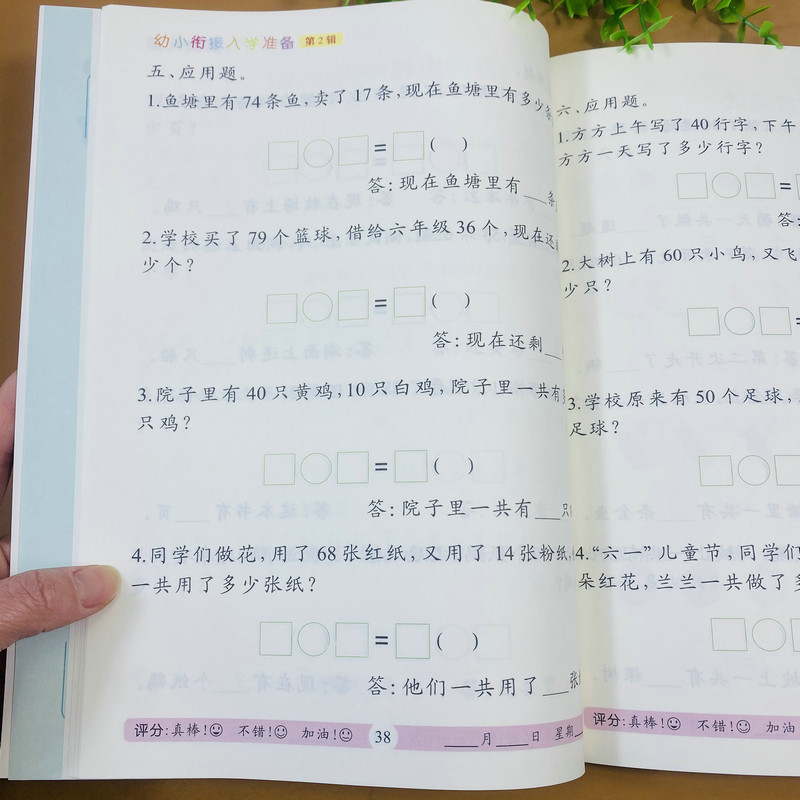 幼小衔接入学准备 第2辑
五、应用题。
1.鱼塘里有74条鱼,卖了17条,现在鱼塘里有多少条
=( )
答:现在鱼塘里有___条
2.学校买了79个篮球,借给六年级36个,现在还
少个?
=( )
答:现在还剩__
3.院子里有40只黄鸡,10只白鸡,院子里一共有
只鸡?
=( )
答:院子里一共有__只
4.同学们做花,用了68张红纸,又用了14张粉纸,
一共用了多少张纸?
=( )
答:他们一共用了__张
评分:真棒! 不错! 加油! 38 ___月___日 星期
六、应用题。
1.方方上午写了40行字,下午
方方一天写了多少行字?
=
答:
2.大树上有60只小鸟,又飞
少只?
=
3.学校原来有50个足球,
足球?
4.“六一”儿童节,同学们
朵红花,兰兰一共做了
评分:真棒! 不错! 加油